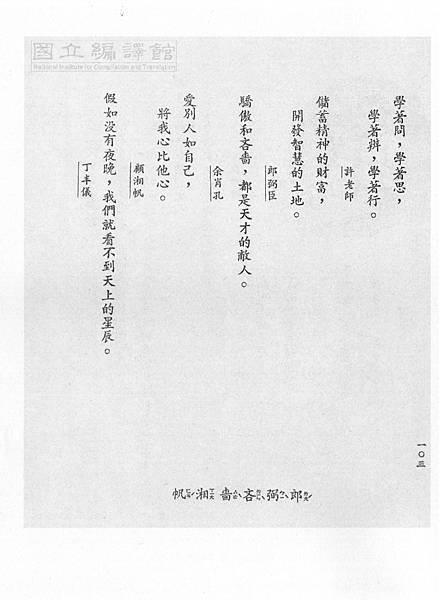 國立編譯館
National Institute for Compilation and Translation
學著問，學著思，
學著辨，學著行。
許老師
儲蓄精神的財富，
開發智慧的土地。
郎弼臣
驕傲和吝嗇，都是天才的敵人。
余肖孔
愛別人如自己，
將我心比他心。
顧湘帆
假如沒有夜晚，我們就看不到天上的星辰。
丁丰儀
一〇三
郎 弼 吝 嗇 湘 帆